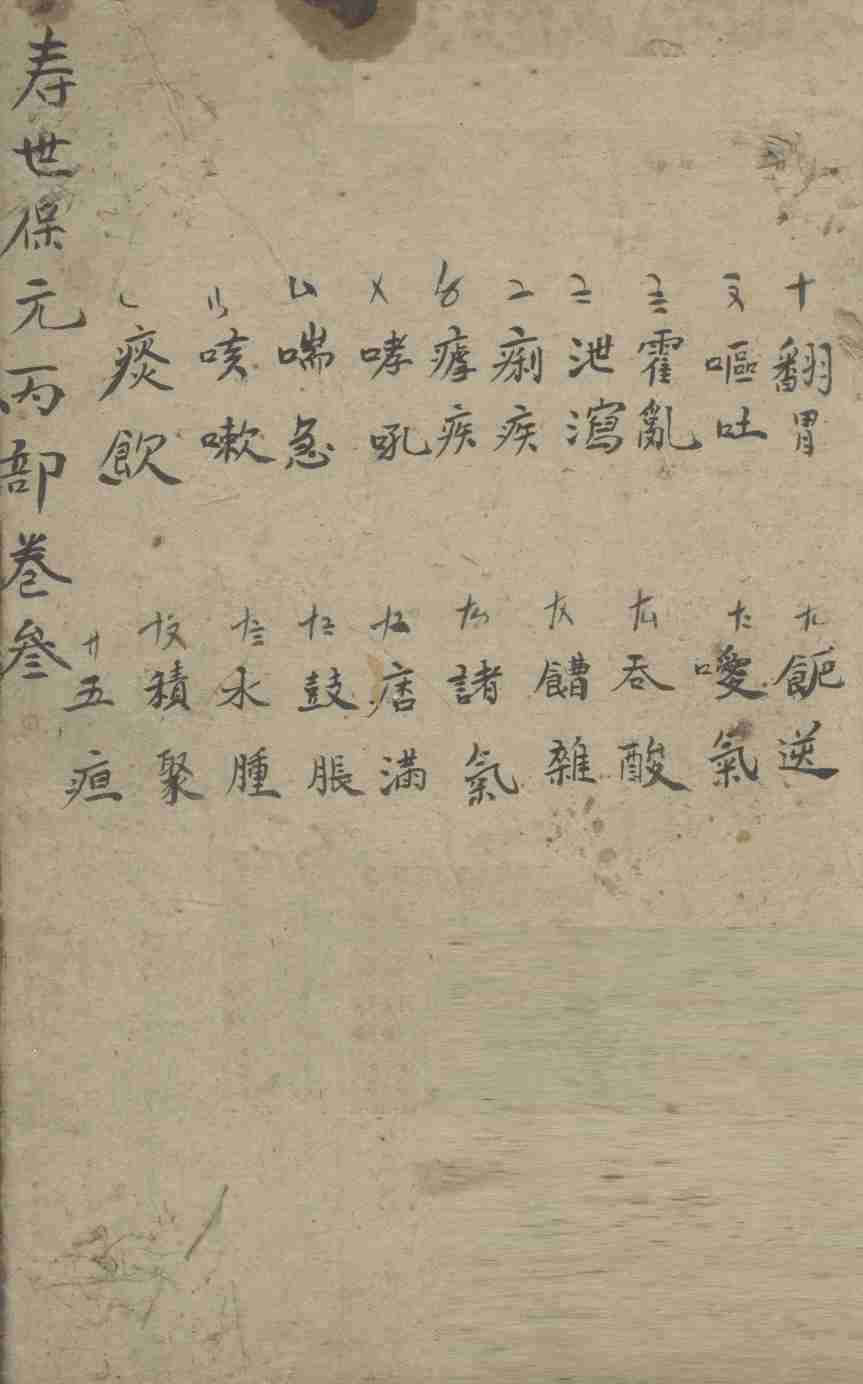 寿世保元丙部巻叄
〡痰飲
〢咳嗽
〣喘急
〤哮吼
〥瘧疾
〦痢疾
〧泄瀉
〨霍亂
〩嘔吐
十翻胃
逆
噯氣
吞酸
雜
諸氣
痞滿
鼓脹
水腫
積聚
廿五疸